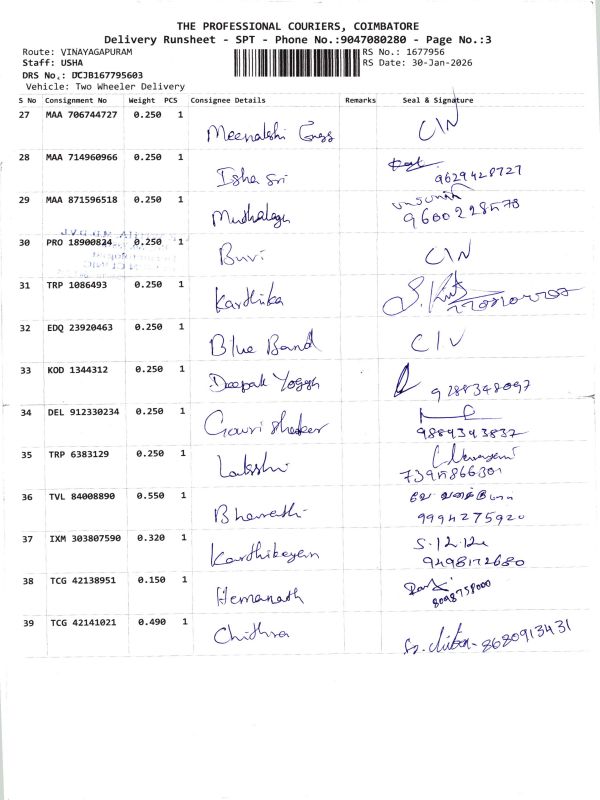 THE PROFESSIONAL COURIERS, COIMBATORE
Delivery Runsheet - SPT - Phone No.:9047080280 - Page No.:3
Route: VINAYAGAPURAM RS No.: 1677956
Staff: USHA RS Date: 30-Jan-2026
DRS No.: DCJB167795603
Vehicle: Two Wheeler Delivery
S No Consignment No Weight PCS Consignee Details Remarks Seal & Signature
27 MAA 706744727 0.250 1 Meenakshi
28 MAA 714960966 0.250 1 Isha Sri 9629428727
29 MAA 871596518 0.250 1 Muthalagu
30 PRO 18900824 0.250 1 Buvi
31 TRP 1086493 0.250 1 Karthika
32 EDQ 23920463 0.250 1 Blue Band
33 KOD 1344312 0.250 1 Deepak 9288348097
34 DEL 912330234 0.250 1 Gowri 9889343832
35 TRP 6383129 0.250 1 7395866301
36 TVL 84008890 0.550 1 Bharathi 9994275920
37 IXM 303807590 0.320 1 Karthikeyan 9498172680
38 TCG 42138951 0.150 1 Hemanath
39 TCG 42141021 0.490 1 Chithra 8680913431